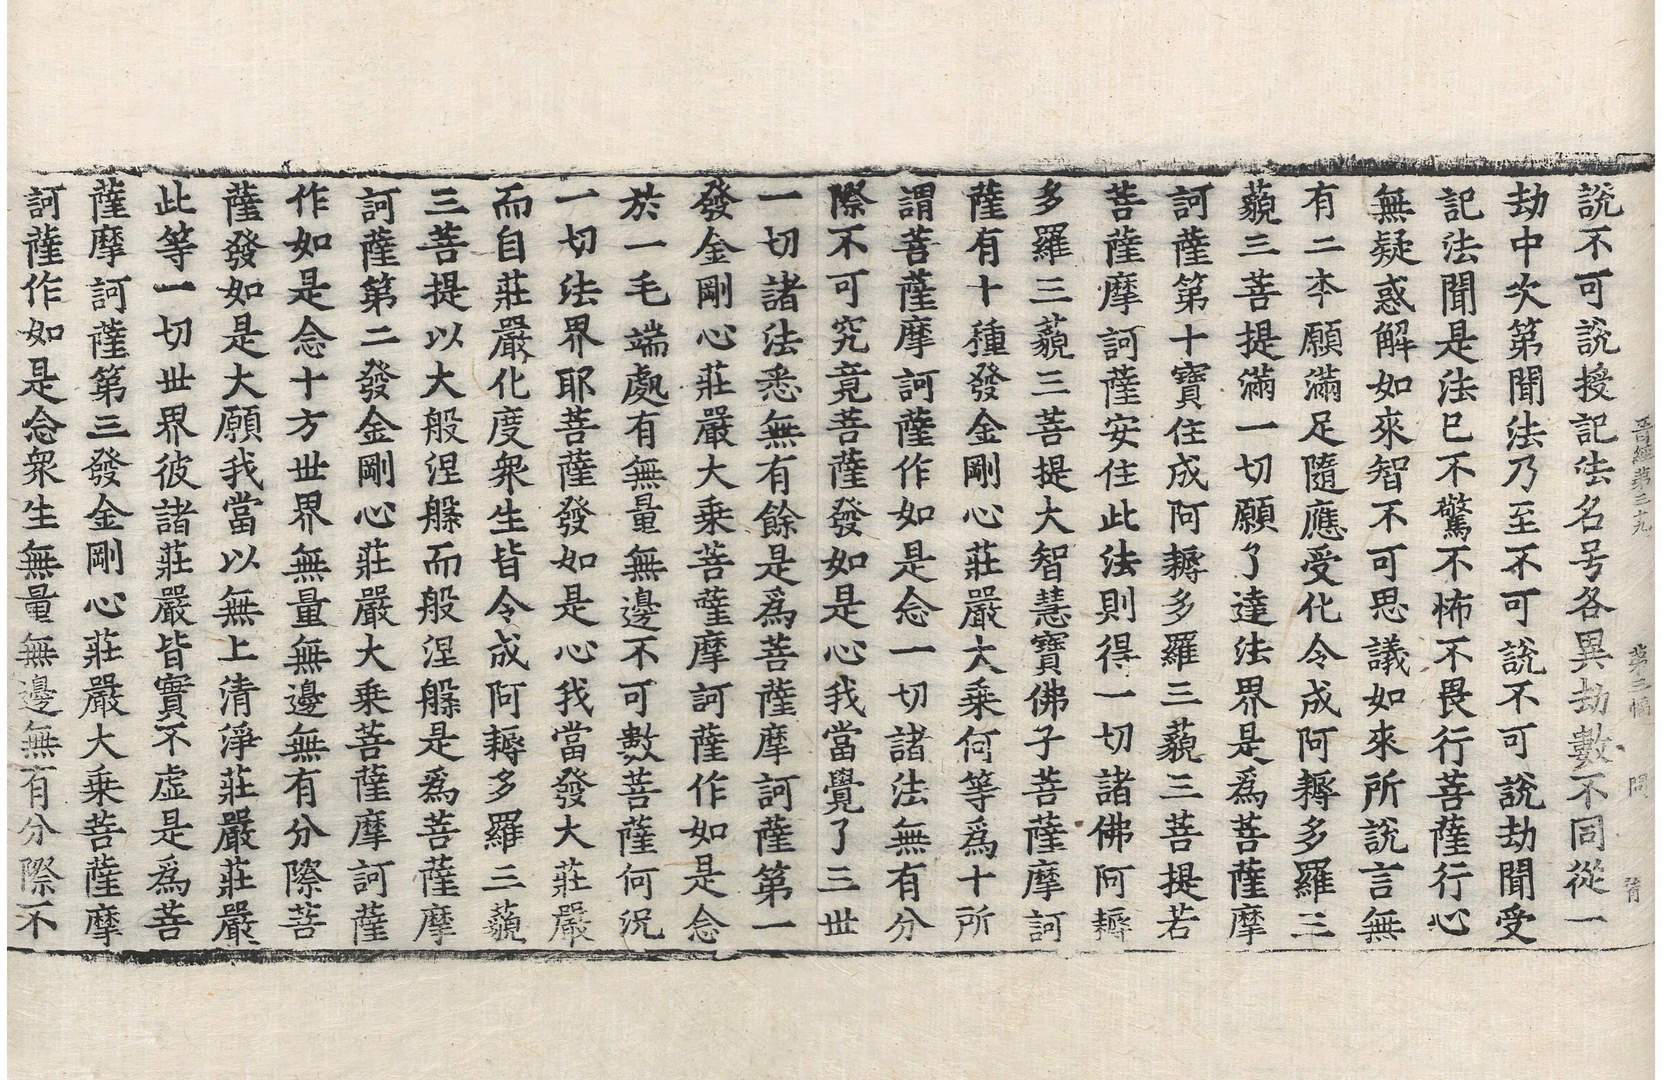 晋經第三十九 第三幅 同 䏍
說不可說授記法名号各異劫數不同從一
劫中次第聞法乃至不可說不可說劫聞受
記法聞是法已不驚不怖不畏行菩薩行心
無疑惑解如來智不可思議如來所說言無
有二本願滿足隨應受化令成阿耨多羅三
藐三菩提滿一切願了達法界是爲菩薩摩
訶薩第十寶住成阿耨多羅三藐三菩提若
菩薩摩訶薩安住此法則得一切諸佛阿耨
多羅三藐三菩提大智慧寶佛子菩薩摩訶
薩有十種發金剛心莊嚴大乘何等爲十所
謂菩薩摩訶薩作如是念一切諸法無有分
際不可究竟菩薩發如是心我當覺了三世
一切諸法悉無有餘是爲菩薩摩訶薩第一
發金剛心莊嚴大乘菩薩摩訶薩作如是念
於一毛端處有無量無邊不可數菩薩何況
一切法界耶菩薩發如是心我當發大莊嚴
而自莊嚴化度衆生皆令成阿耨多羅三藐
三菩提以大般涅槃而般涅槃是爲菩薩摩
訶薩第二發金剛心莊嚴大乘菩薩摩訶薩
作如是念十方世界無量無邊無有分際菩
薩發如是大願我當以無上清淨莊嚴莊嚴
此等一切世界彼諸莊嚴皆實不虛是爲菩
薩摩訶薩第三發金剛心莊嚴大乘菩薩摩
訶薩作如是念衆生無量無邊無有分際不